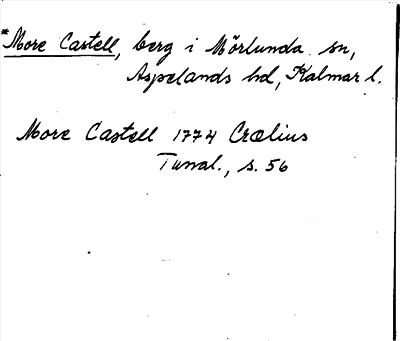 *More Castell, berg i Mörlunda sn,
Aspelands hd, Kalmar l.
More Castell 1774 Crælius
Tunal., s. 56